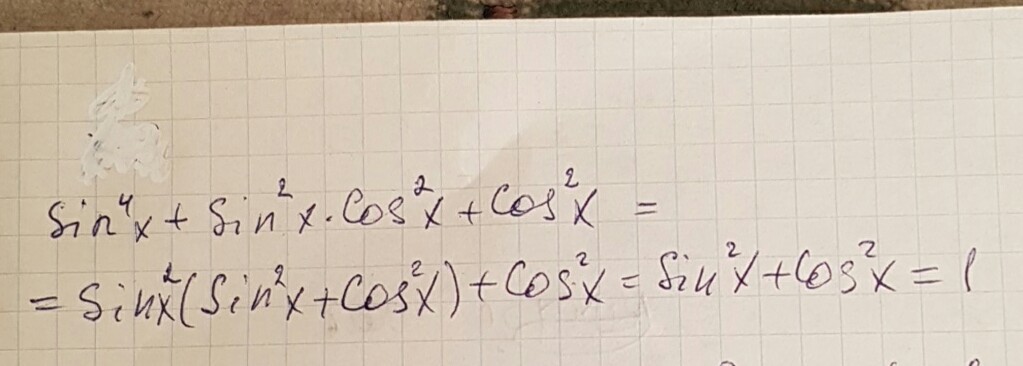 sin⁴x + sin²x · cos²x + cos²x =
= sinx²(sin²x + cos²x) + cos²x = sin²x + cos²x = 1